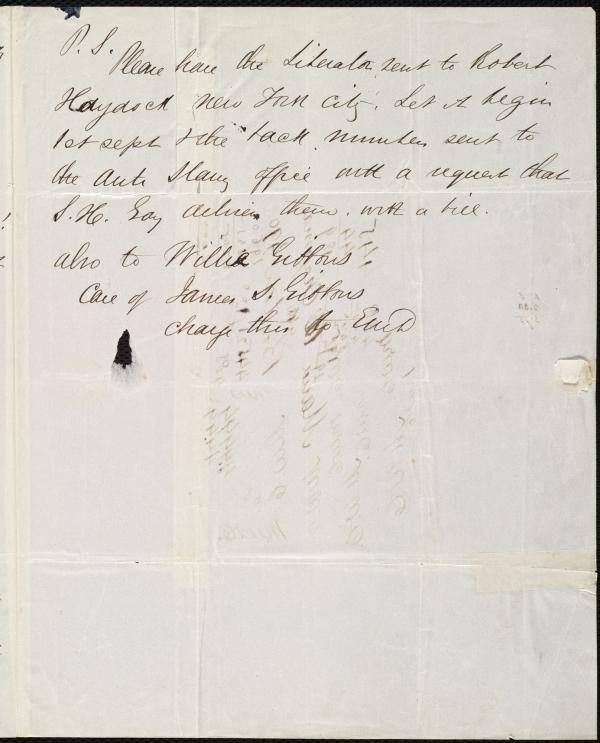 P.S.
Please have the Liberator sent to Robert
Haydock New York City. Let it begin
1st Sept & the back numbers sent to
the Anti Slavery office with a request that
S. H. Gay deliver them. with a bill.
also to William Gibbons
Care of James S. Gibbons
charge this to